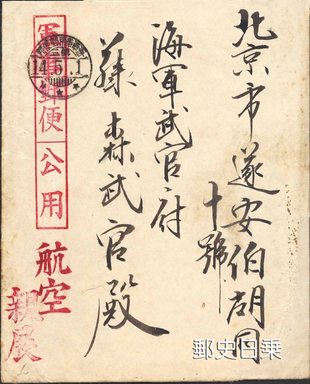 北京市遂安伯胡同
十號
海軍武官府
藤森武官殿
軍事郵便
公用
航空
親展
14.5.1
郵史日乗